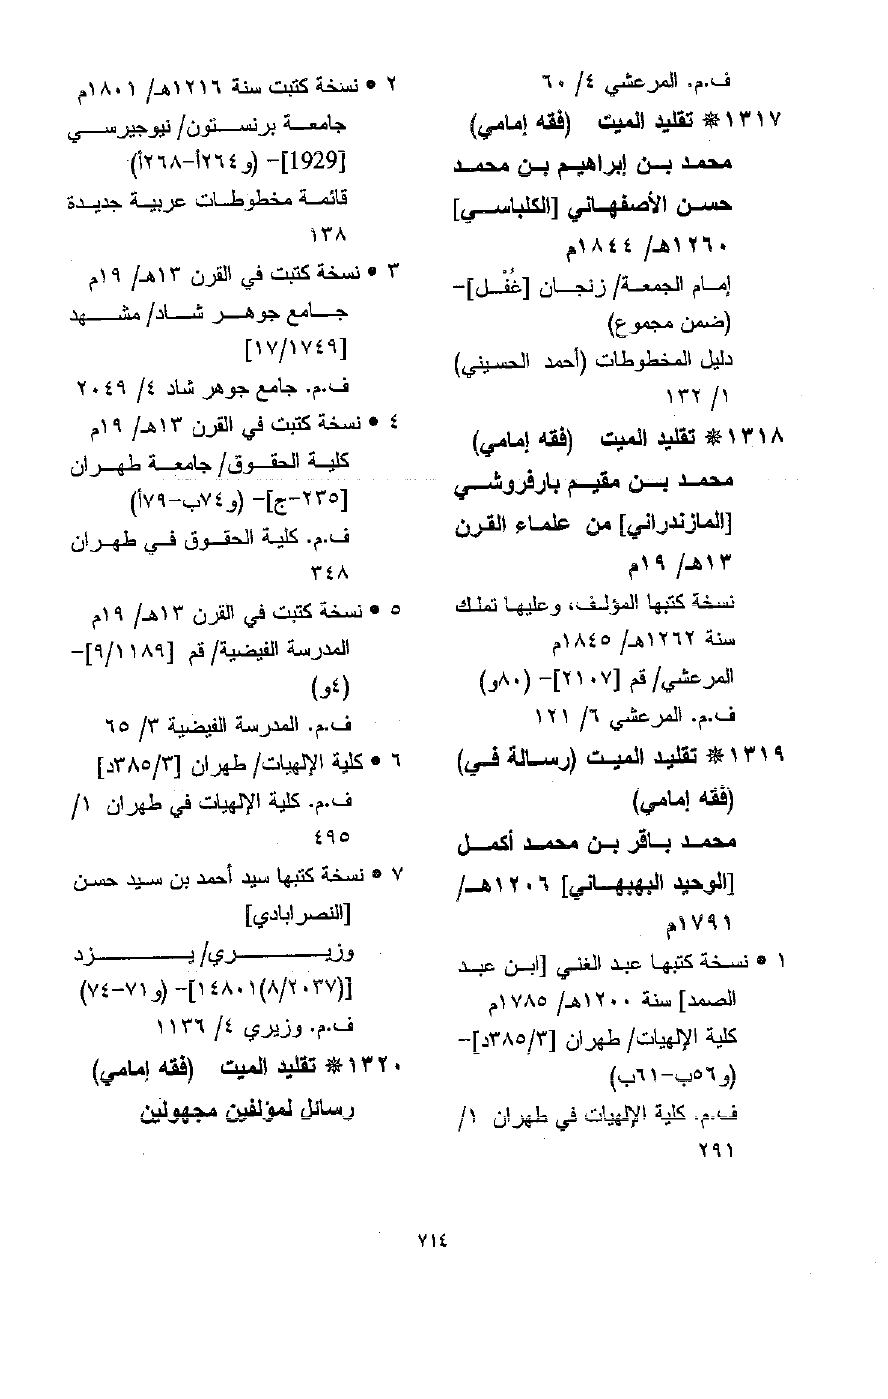 ف.م. المرعشي ٤/ ٦٠
١٣١٧* تقليد الميت (فقه إمامي)
محمد بن إبراهيم بن محمد
حسن الأصفهاني [الكلباسي]
١٢٦٠هـ/ ١٨٤٤م
إمام الجمعة/ زنجان [غُفْل]-
(ضمن مجموع)
دليل المخطوطات (أحمد الحسيني)
١/ ١٣٢
١٣١٨* تقليد الميت (فقه إمامي)
محمد بن مقيم بارفروشي
[المازندراني] من علماء القرن
١٣هـ/ ١٩م
نسخة كتبها المؤلف، وعليها تملك
سنة ١٢٦٢هـ/ ١٨٤٥م
المرعشي/ قم [٢١٠٧]- (٨٠و)
ف.م. المرعشي ٦/ ١٢١
١٣١٩* تقليد الميت (رسالة في)
(فقه إمامي)
محمد باقر بن محمد أكمل
[الوحيد البهبهاني] ١٢٠٦هـ/
١٧٩١م
١ • نسخة كتبها عبد الغني [ابن عبد
الصمد] سنة ١٢٠٠هـ/ ١٧٨٥م
كلية الإلهيات/ طهران [٣٨٥/٣د]-
(و٥٦ب-٦١ب)
ف.م. كلية الإلهيات في طهران ١/
٢٩١
٢ • نسخة كتبت سنة ١٢١٦هـ/ ١٨٠١م
جامعة برنستون/ نيوجيرسي
[1929]- (و٢٦٤أ-٢٦٨أ)
قائمة مخطوطات عربية جديدة
١٣٨
٣ • نسخة كتبت في القرن ١٣هـ/ ١٩م
جامع جوهر شاد/ مشهد
[١٧/١٧٤٩]
ف.م. جامع جوهر شاد ٤/ ٢٠٤٩
٤ • نسخة كتبت في القرن ١٣هـ/ ١٩م
كلية الحقوق/ جامعة طهران
[٢٣٥-ج]- (و٧٤ب-٧٩أ)
ف.م. كلية الحقوق في طهران
٣٤٨
٥ • نسخة كتبت في القرن ١٣هـ/ ١٩م
المدرسة الفيضية/ قم [٩/١١٨٩]-
(٤و)
ف.م. المدرسة الفيضية ٣/ ٦٥
٦ • كلية الإلهيات/ طهران [٣٨٥/٣د]
ف.م. كلية الإلهيات في طهران ١/
٤٩٥
٧ • نسخة كتبها سيد أحمد بن سيد حسن
[النصرابادي]
وزيري/ يزد
[(٨/٢٠٣٧)١٤٨٠١]- (و٧١-٧٤)
ف.م. وزيري ٤/ ١١٣٦
١٣٢٠* تقليد الميت (فقه إمامي)
رسائل لمؤلفين مجهولين
٧١٤